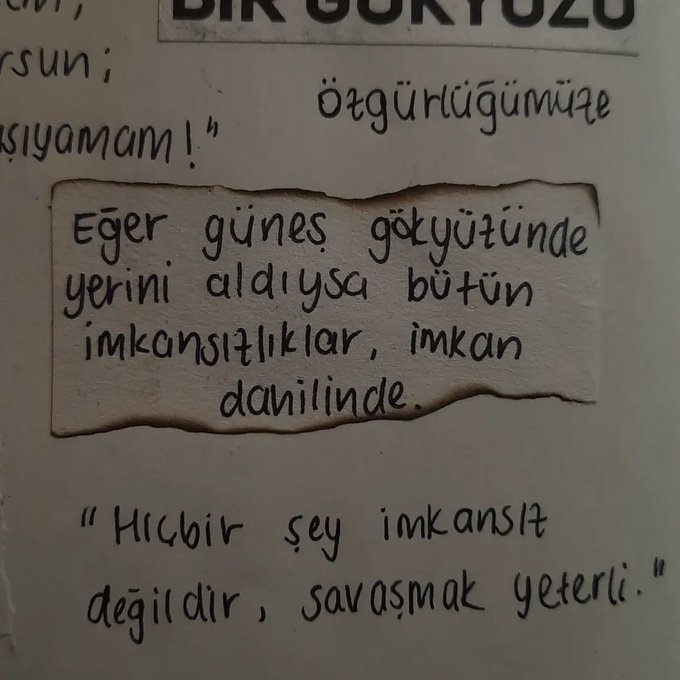 BİR GÖKYÜZÜ
rsun;
Özgürlüğümüze
aşıyamam!"
Eğer güneş gökyüzünde
yerini aldıysa bütün
imkansızlıklar, imkan
dahilinde.
"Hiçbir şey imkansız
değildir, savaşmak yeterli."